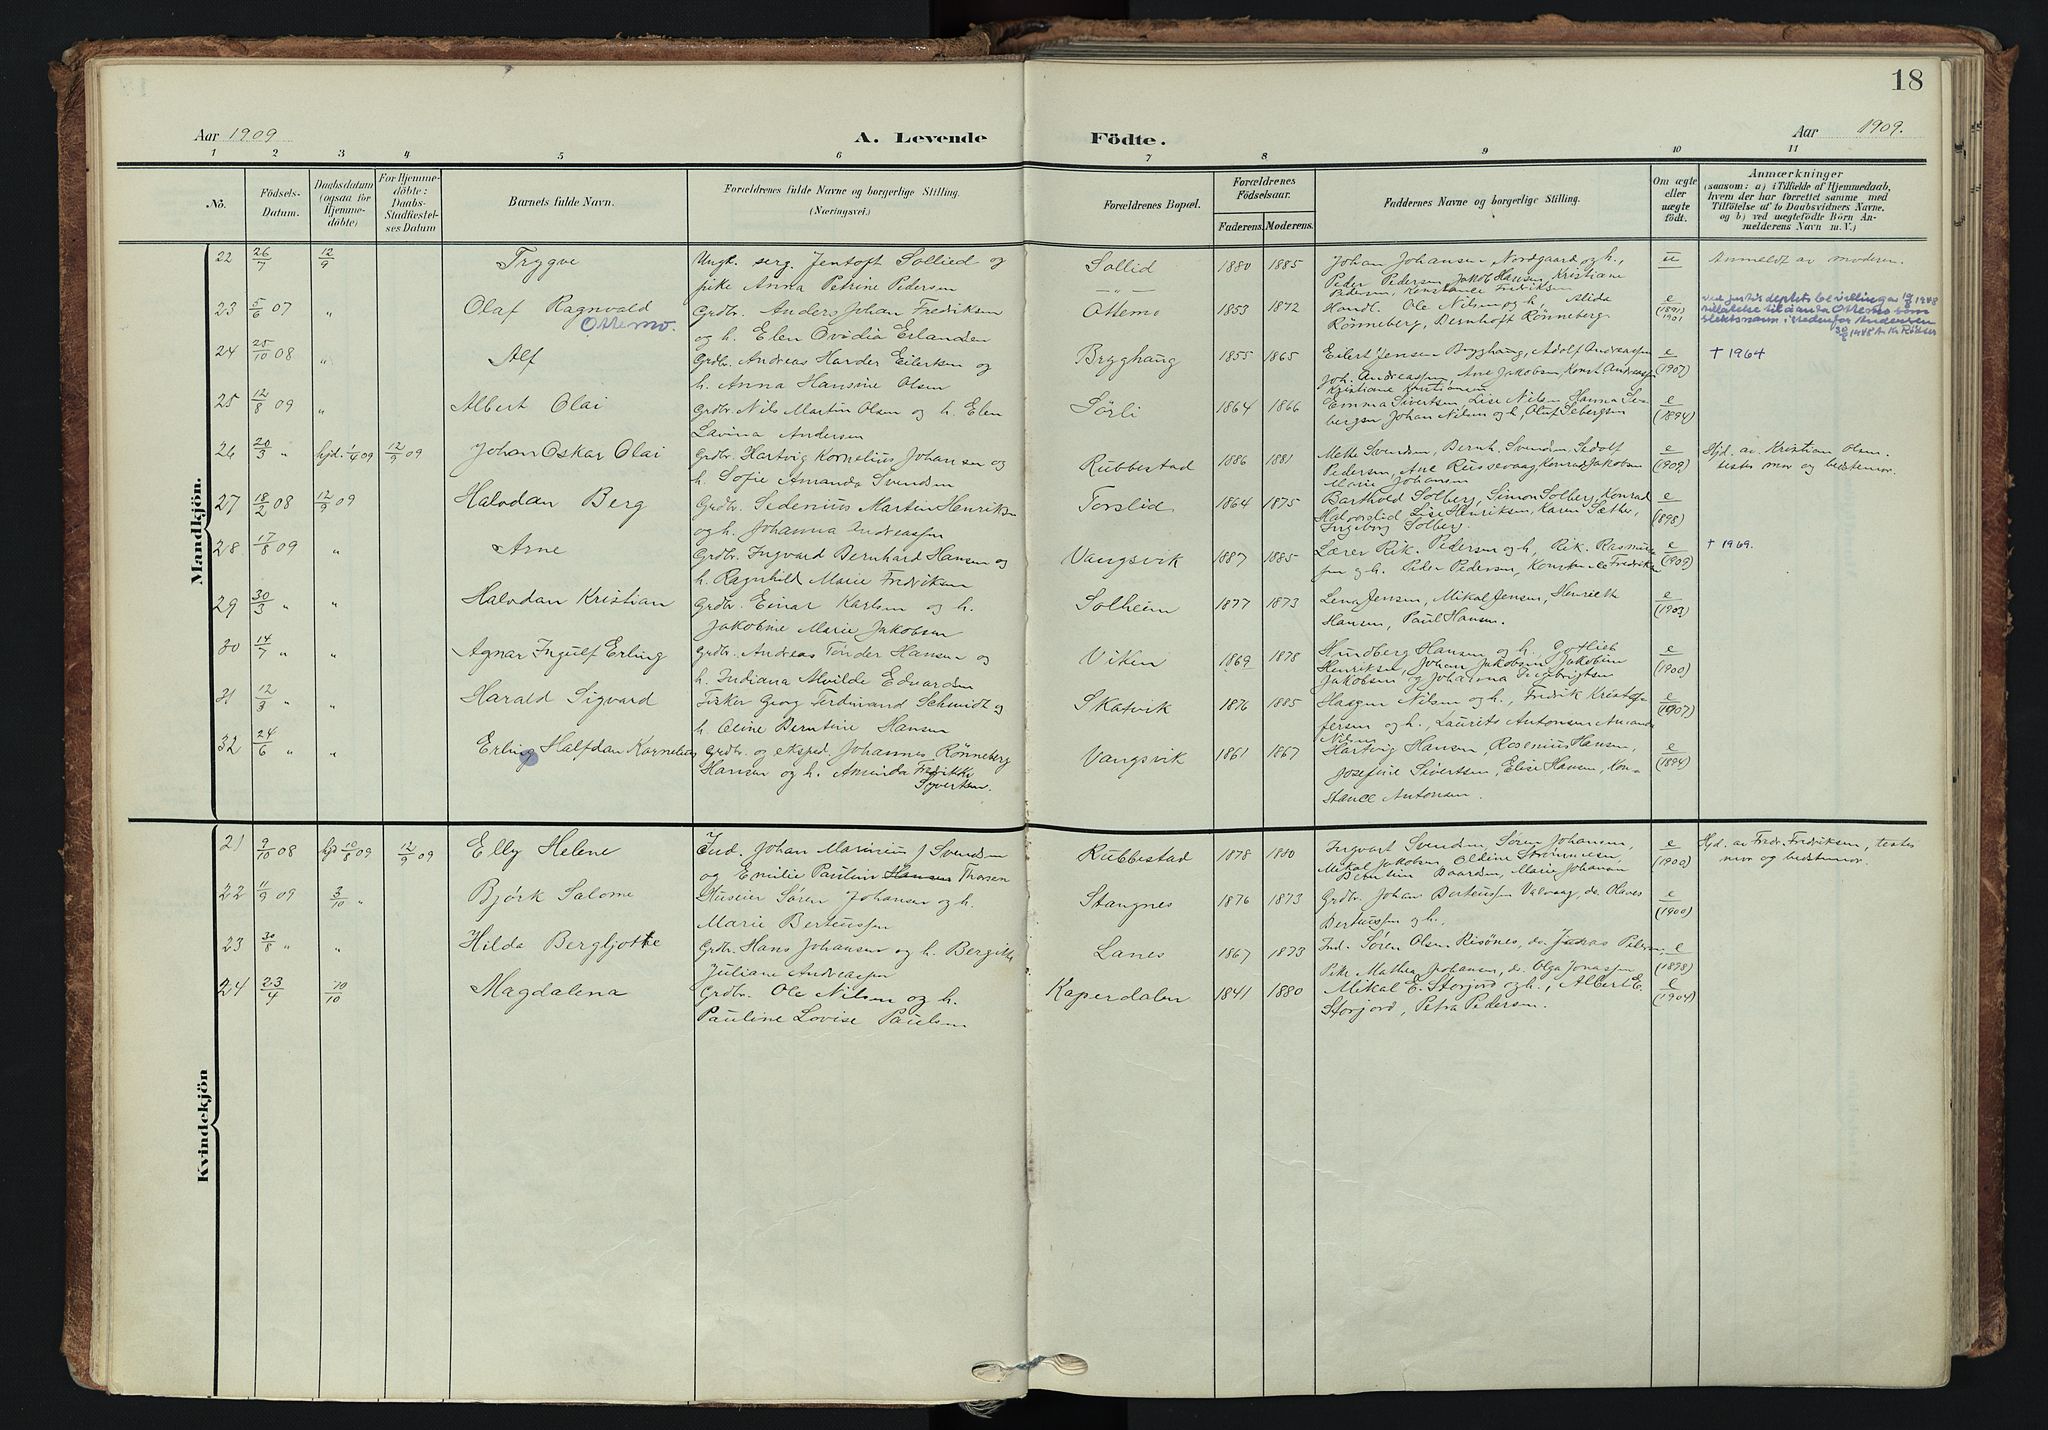 18
Aar 1909
A. Levende
Födte.
Aar 1909.
1 2 3 4 5 6 7 8 9 10 11
No.
Födsels-Datum.
Daabsdatum (ogsaa for Hjemmedöbte)
For Hjemmedöbte: Daabs-Stadfæstelses Datum
Barnets fulde Navn.
Forældrenes fulde Navne og borgerlige Stilling. (Næringsvei.)
Forældrenes Bopæl.
Forældrenes Födselsaar.
Faderens. Moderens.
Faddernes Navne og borgerlige Stilling.
Om ægte eller uægte födt.
Anmærkninger
(saasom: a) i Tilfælde af Hjemmedaab, hvem der har forrettet samme med Tilföielse af to Daabsvidners Navne. og b) ved uægtefödte Börn Anmelderens Navn m. V.)
Mandkjön.
22 26/7 12/9 Trygve Ungk. serg. Jentoft Sollied og Sollid 1880 1885 Johan Johansen Nordgaard og h., u Anmeldt av moderen.
pike Anna Petrine Pedersen — " — Peder Pedersen, Jakob Hansen, Kristiane Pedersen, Konstanse Fredriksen
23 5/6 07 " Olaf Ragnvald Grdbr. Anders Johan Fredriksen Ottemo 1853 1872 Handl. Ole Nilsen og h., Alida e (1891) 1901
Ottemo. og h. Elen Ovidia Erlandsen Rönneberg, Bernhoft Rönneberg
24 25/10 08 " Alf Grdbr. Andreas Harder Eilertsen og Brygghaug 1855 1865 Eilert Jensen Brygghaug, Adolf Andreassen e (1907) † 1964
h. Anna Hansine Olsen Joh. Andreassen, Ane Jakobsen, Konst. Andreassen
25 12/8 09 " Albert Olai Grdbr. Nils Martin Olsen og h. Elen Sörli 1864 1866 Emma Sivertsen, Lise Nilsen, Hanna Se- e (1894)
Lavina Andersen bergsen, Johan Nilsen og h., Oluf Sebergsen
26 20/3 " hjd. 1/4 09 12/9 09 Johan Oskar Olai Grdbr. Hartvig Kornelius Johansen og Rubbestad 1886 1881 Mette Svendsen, Bernh. Svendsen, Sedolf e (1909) Hjd. av Kristian Olsen
h. Sofie Amanda Svendsen Pedersen, Ane Russevaag, Konrad Jakobsen testes mor og bedstemor.
Marie Johansen
27 18/2 08 12/9 09 Halvdan Berg Grdbr. Sedenius Martin Henriksen Torslid 1864 1875 Barthold Solberg, Simon Solberg, Konrad e (1898)
og h. Johanna Andreassen Halvorslid, Lise Henriksen, Karen Sæther,
Ingeborg Solberg.
28. 17/8 09 " Arne Grdbr. Ingvard Bernhard Hansen og Vangsvik 1887 1885 Lærer Rik. Pedersen og h., Rik. Rasmus- e (1909) † 1969.
h. Ragnhild Marie Fredriksen sen og h. Peder Pedersen, Konstanse Fredriksen
29 30/3 " " Halvdan Kristian Grdbr. Einar Karlsen og h. Solheim 1877 1873 Lena Jensen, Mikal Jensen, Henriette e (1903)
Jakobine Marie Jakobsen Hansen, Paul Hansen.
30 14/7 " " Agnar Ingulf Erling Grdbr. Andreas Tönder Hansen og Viken 1869 1878 Hundberg Hansen og h., Gotlieb e (1900)
h. Indiana Alvilde Edvardsen Henriksen, Johan Jakobsen, Jakobine
Jakobsen og Johanna Ingebrigtsen
31 12/3 " " Harald Sigvard Fisker Georg Ferdinand Schmidt og Skatvik 1876 1885 Hasgen Nilsen og h., Fredrik Kristof- e (1907)
h. Oline Berntine Hansen fersen og h., Laurits Antonsen, Amanda
Nilsen
32 24/6 " " Erling Halfdan Kornelius Grdbr. og eksped. Johannes Rönneberg Vangsvik 1861 1867 Hartvig Hansen, Rosenius Hansen, e (1894)
Hansen og h. Aminda Fredrikke Josefine Sivertsen, Elise Hansen, Kon-
Sivertsen. stance Antonsen.
Kvindekjön
21 9/10 08 hjd 10/8 09 12/9 09 Elly Helene Ind. Johan Marinius J Svendsen Rubbestad 1878 1880 Ingvart Svendsen, Sören Johansen, e (1900) Hjd. av Fredr. Fredriksen, testes
og Emilie Pauline Hansen Thorsen Mikal Jakobsen, Oldine Strömnesen, mor og bedstemor.
Berntine Baardsen, Marie Johansen
22 11/9 09 3/10 " Björk Salome Husseier Sören Johansen og h. Stangnes 1876 1873 Grdbr. Johan Berteussen Valvaag, do. Olaves e (1900)
Marie Berteussen Berteussen og h.
23 30/8 " " Hilda Bergljotte Grdbr. Hans Johansen og h. Bergitte Lanes 1867 1873 Ind. Sören Olsen Risönes, do. Judas Pedersen, e (1898)
Juliane Andreassen Pike Mathea Johansen, do. Olga Jonassen
24 23/4 10/10 Magdalena Grdbr. Ole Nilsen og h. Kaperdalen 1841 1880 Mikal E. Storjord og h., Albert E. e (1904)
Pauline Lovise Paulsen Storjord, Petra Pedersen.